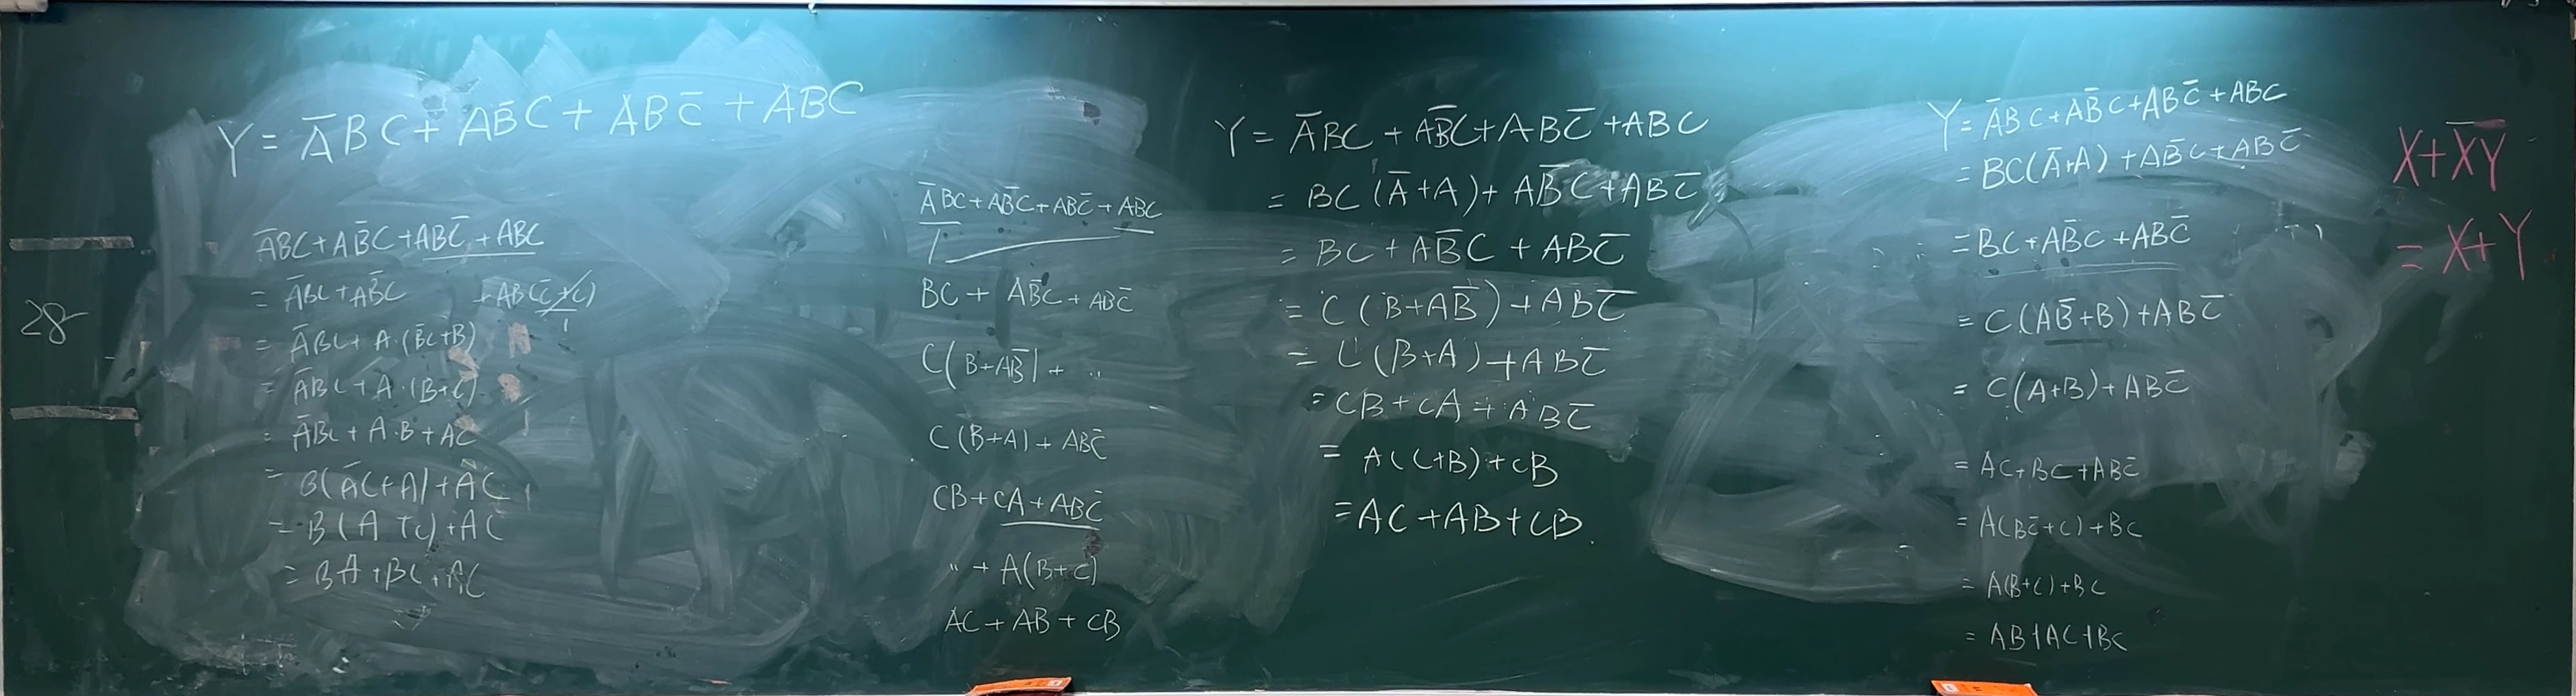 28
Y = A̅BC + AB̅C + ABC̅ + ABC
A̅BC + AB̅C + ABC̅ + ABC
= A̅BC + AB̅C + AB(C̅+C)
1
= A̅BC + A·(B̅C+B)
= A̅BC + A·(B+C)
= A̅BC + A·B + AC
= B(A̅C+A) + AC
= B(A+C) + AC
= BA + BC + AC
A̅BC + AB̅C + ABC̅ + ABC
BC + AB̅C + ABC̅
C(B+AB̅) + ..
C(B+A) + ABC̅
CB + CA + ABC̅
" + A(B+C)
AC + AB + CB
Y = A̅BC + AB̅C + ABC̅ + ABC
= BC(A̅+A) + AB̅C + ABC̅
= BC + AB̅C + ABC̅
= C(B+AB̅) + ABC̅
= C(B+A) + ABC̅
= CB + CA + ABC̅
= A(C+B) + CB
= AC + AB + CB
Y = A̅BC + AB̅C + ABC̅ + ABC
= BC(A̅+A) + AB̅C + ABC̅
= BC + AB̅C + ABC̅
= C(AB̅+B) + ABC̅
= C(A+B) + ABC̅
= AC + BC + ABC̅
= A(BC̅+C) + BC
= A(B+C) + BC
= AB + AC + BC
X+X̅Y̅
= X+Y